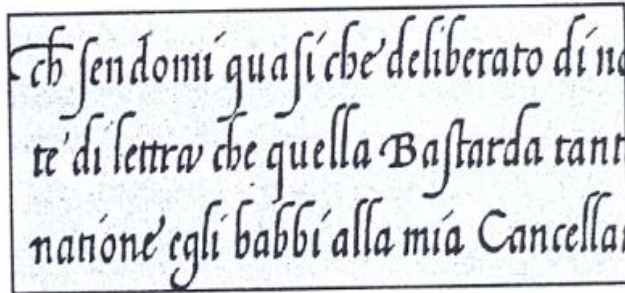 ch ſendomi quaſi che deliberato di no
te di lettra che quella Baſtarda tant
natione egli babbi alla mia Cancellar